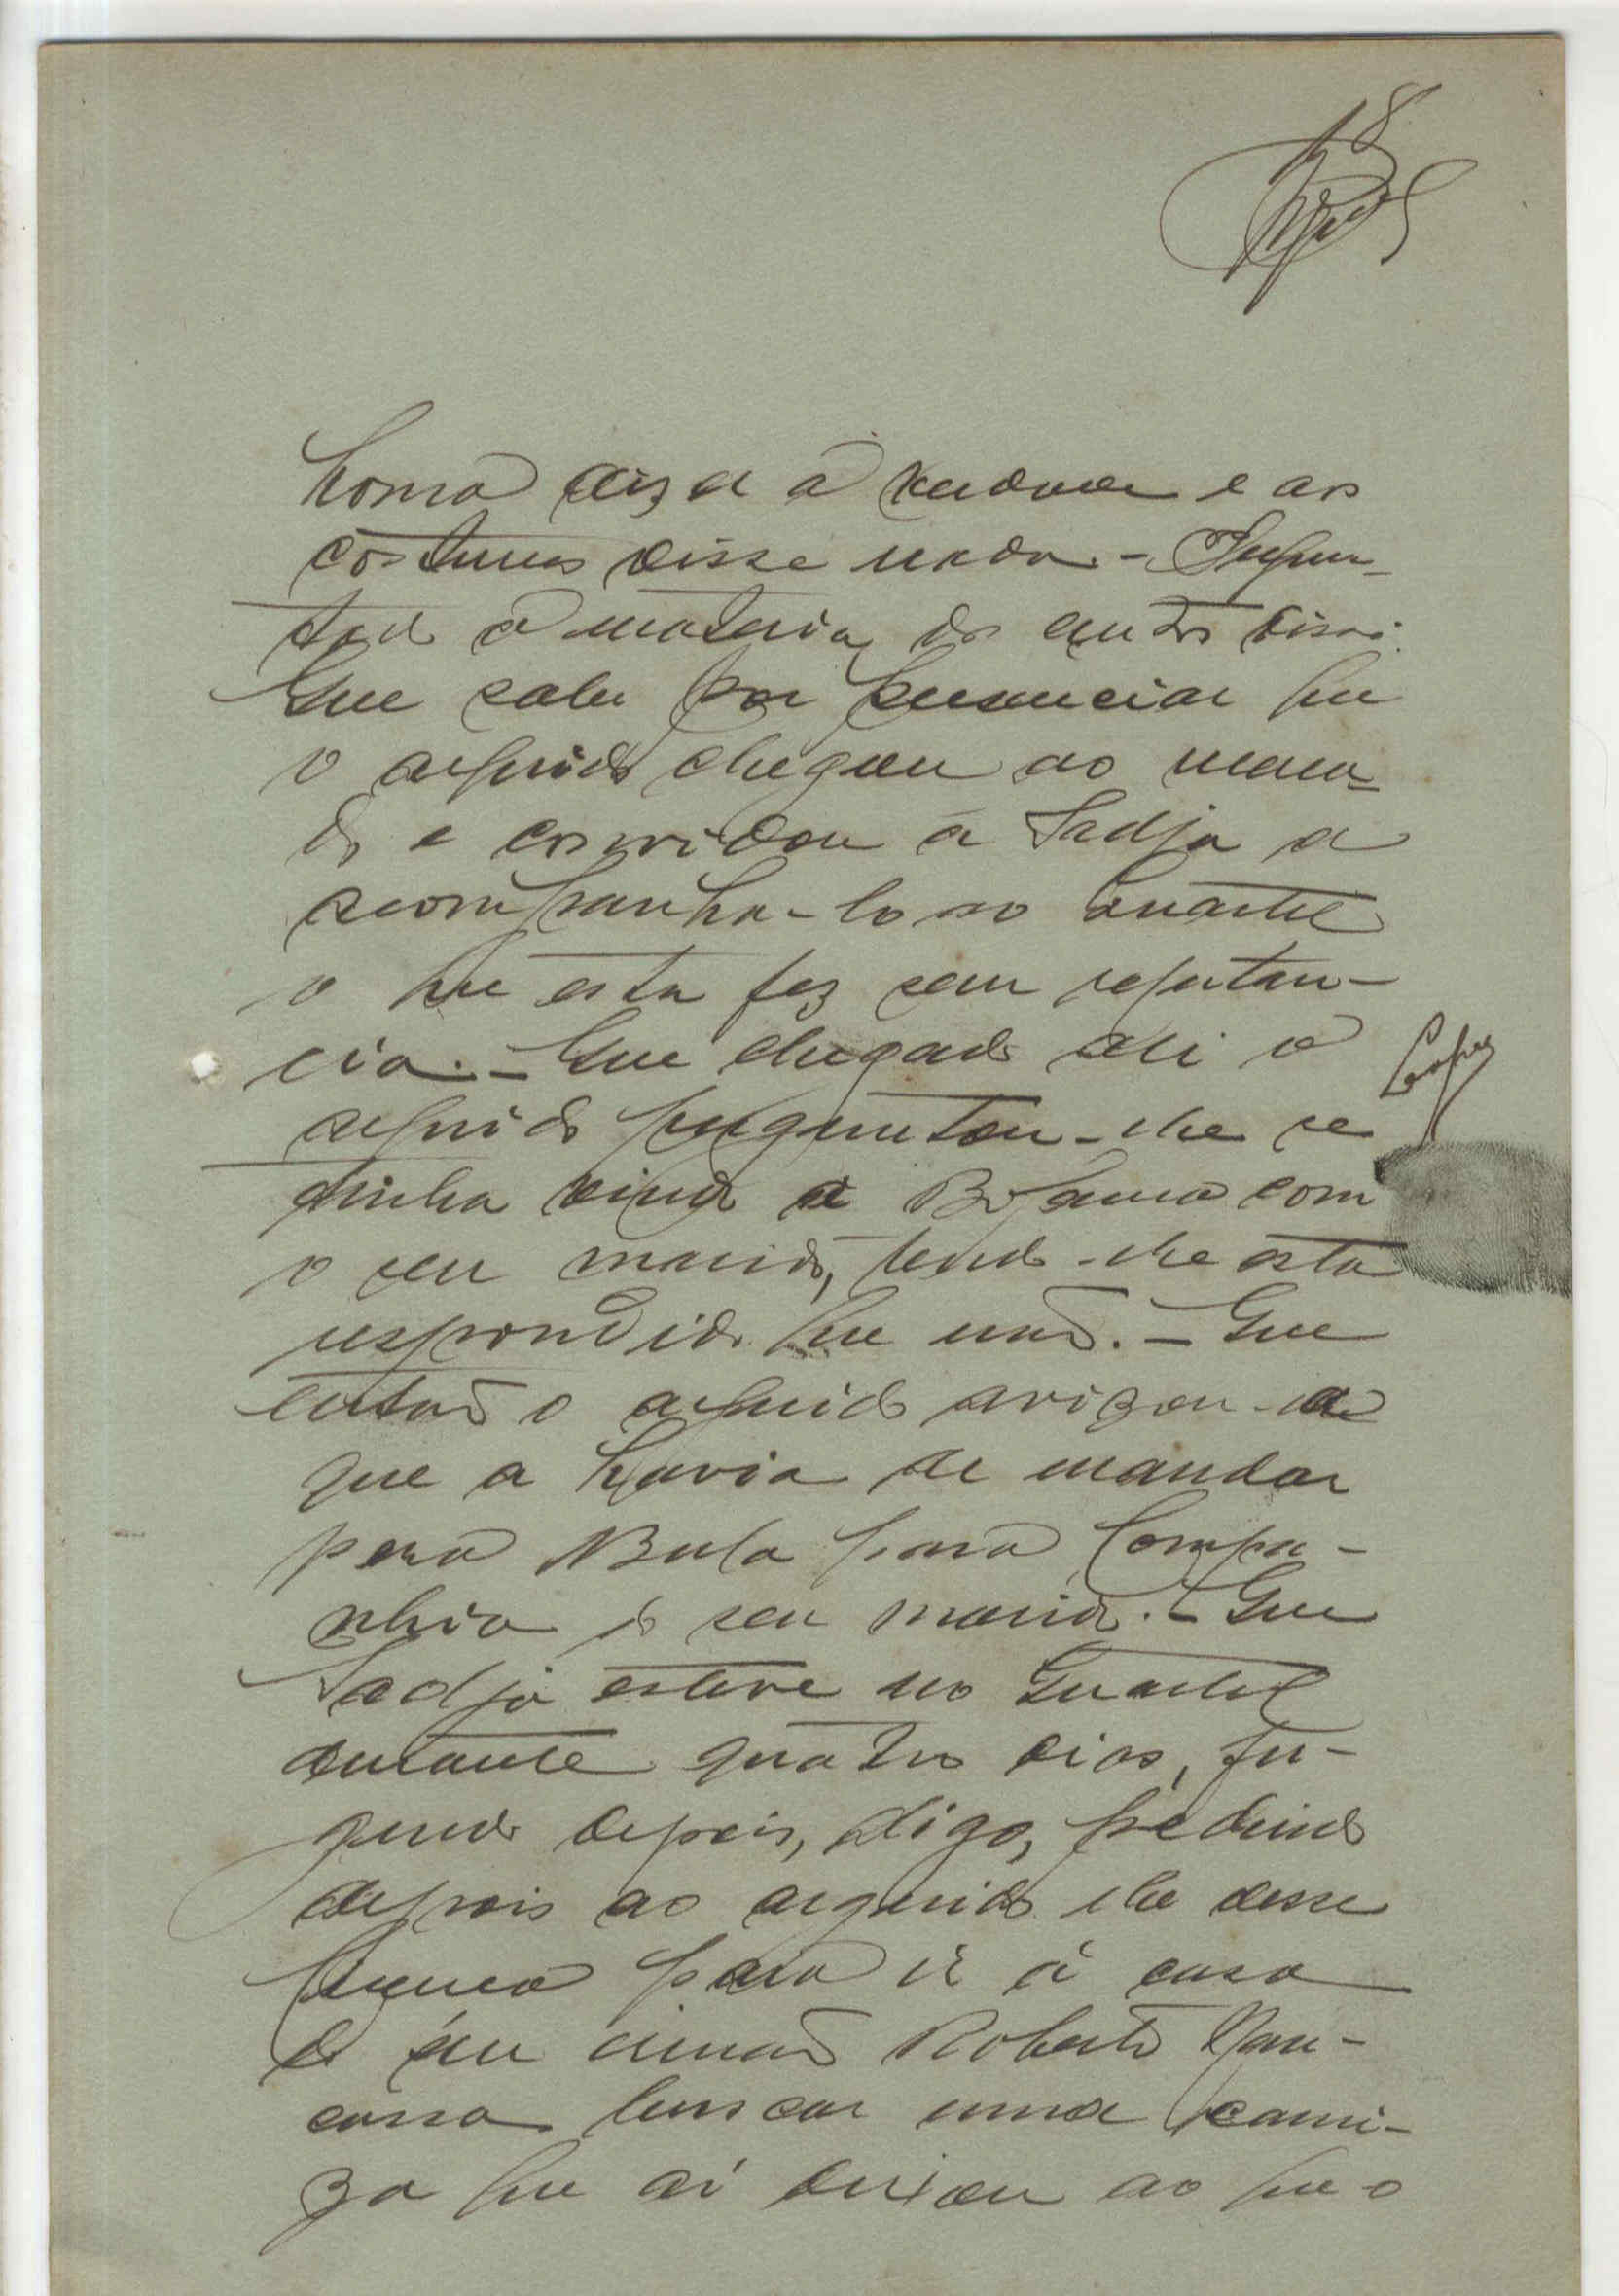 8
honra dizer a verdade e aos
costumes disse nada. - Pregun-
tado á materia dos autos disse:
Que sabe por presenciar que
o arguido chegou ao merca-
do e convidou a Sadjo a
acompanha-lo ao Quartel
o que esta fez sem relutan-
cia. - Que chegado ali o
arguido perguntou-lhe se
tinha vindo a Bolama com
o seu marido, tendo-lhe esta
respondido que não. - Que
então o arguido avizou-a
que a havia de mandar
para Buba para compa-
nhia do seu marido. - Que
Sadjo esteve no Quartel
durante quatro dias, fu-
gindo depois, digo, pedindo
depois ao arguido lhe desse
licença para ir á casa
do seu irmão Roberto
buscar uma cami-
za que aí deixou ao que o